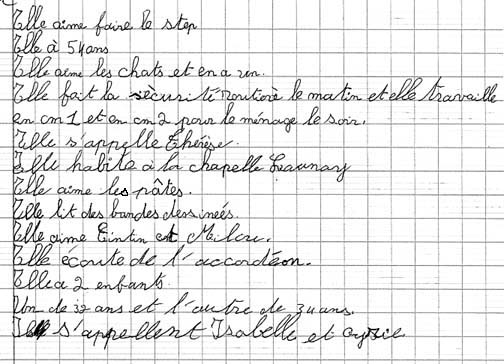 Elle aime faire le step
Elle à 54 ans
Elle aime les chats et en a un.
Elle fait la sècurité routière le matin et elle travaille
en cm 1 et en cm 2 pour le ménage le soir.
Elle s'appelle Thérèse.
Elle habite à la chapelle Launay
Elle aime les pâtes.
Elle lit des bandes dessineés.
Elle aime Tintin et Milou.
Elle ecoute de l'accordéon.
Elle a 2 enfants
Un de 32 ans et l'autre de 34 ans.
s'appellent Isabelle et